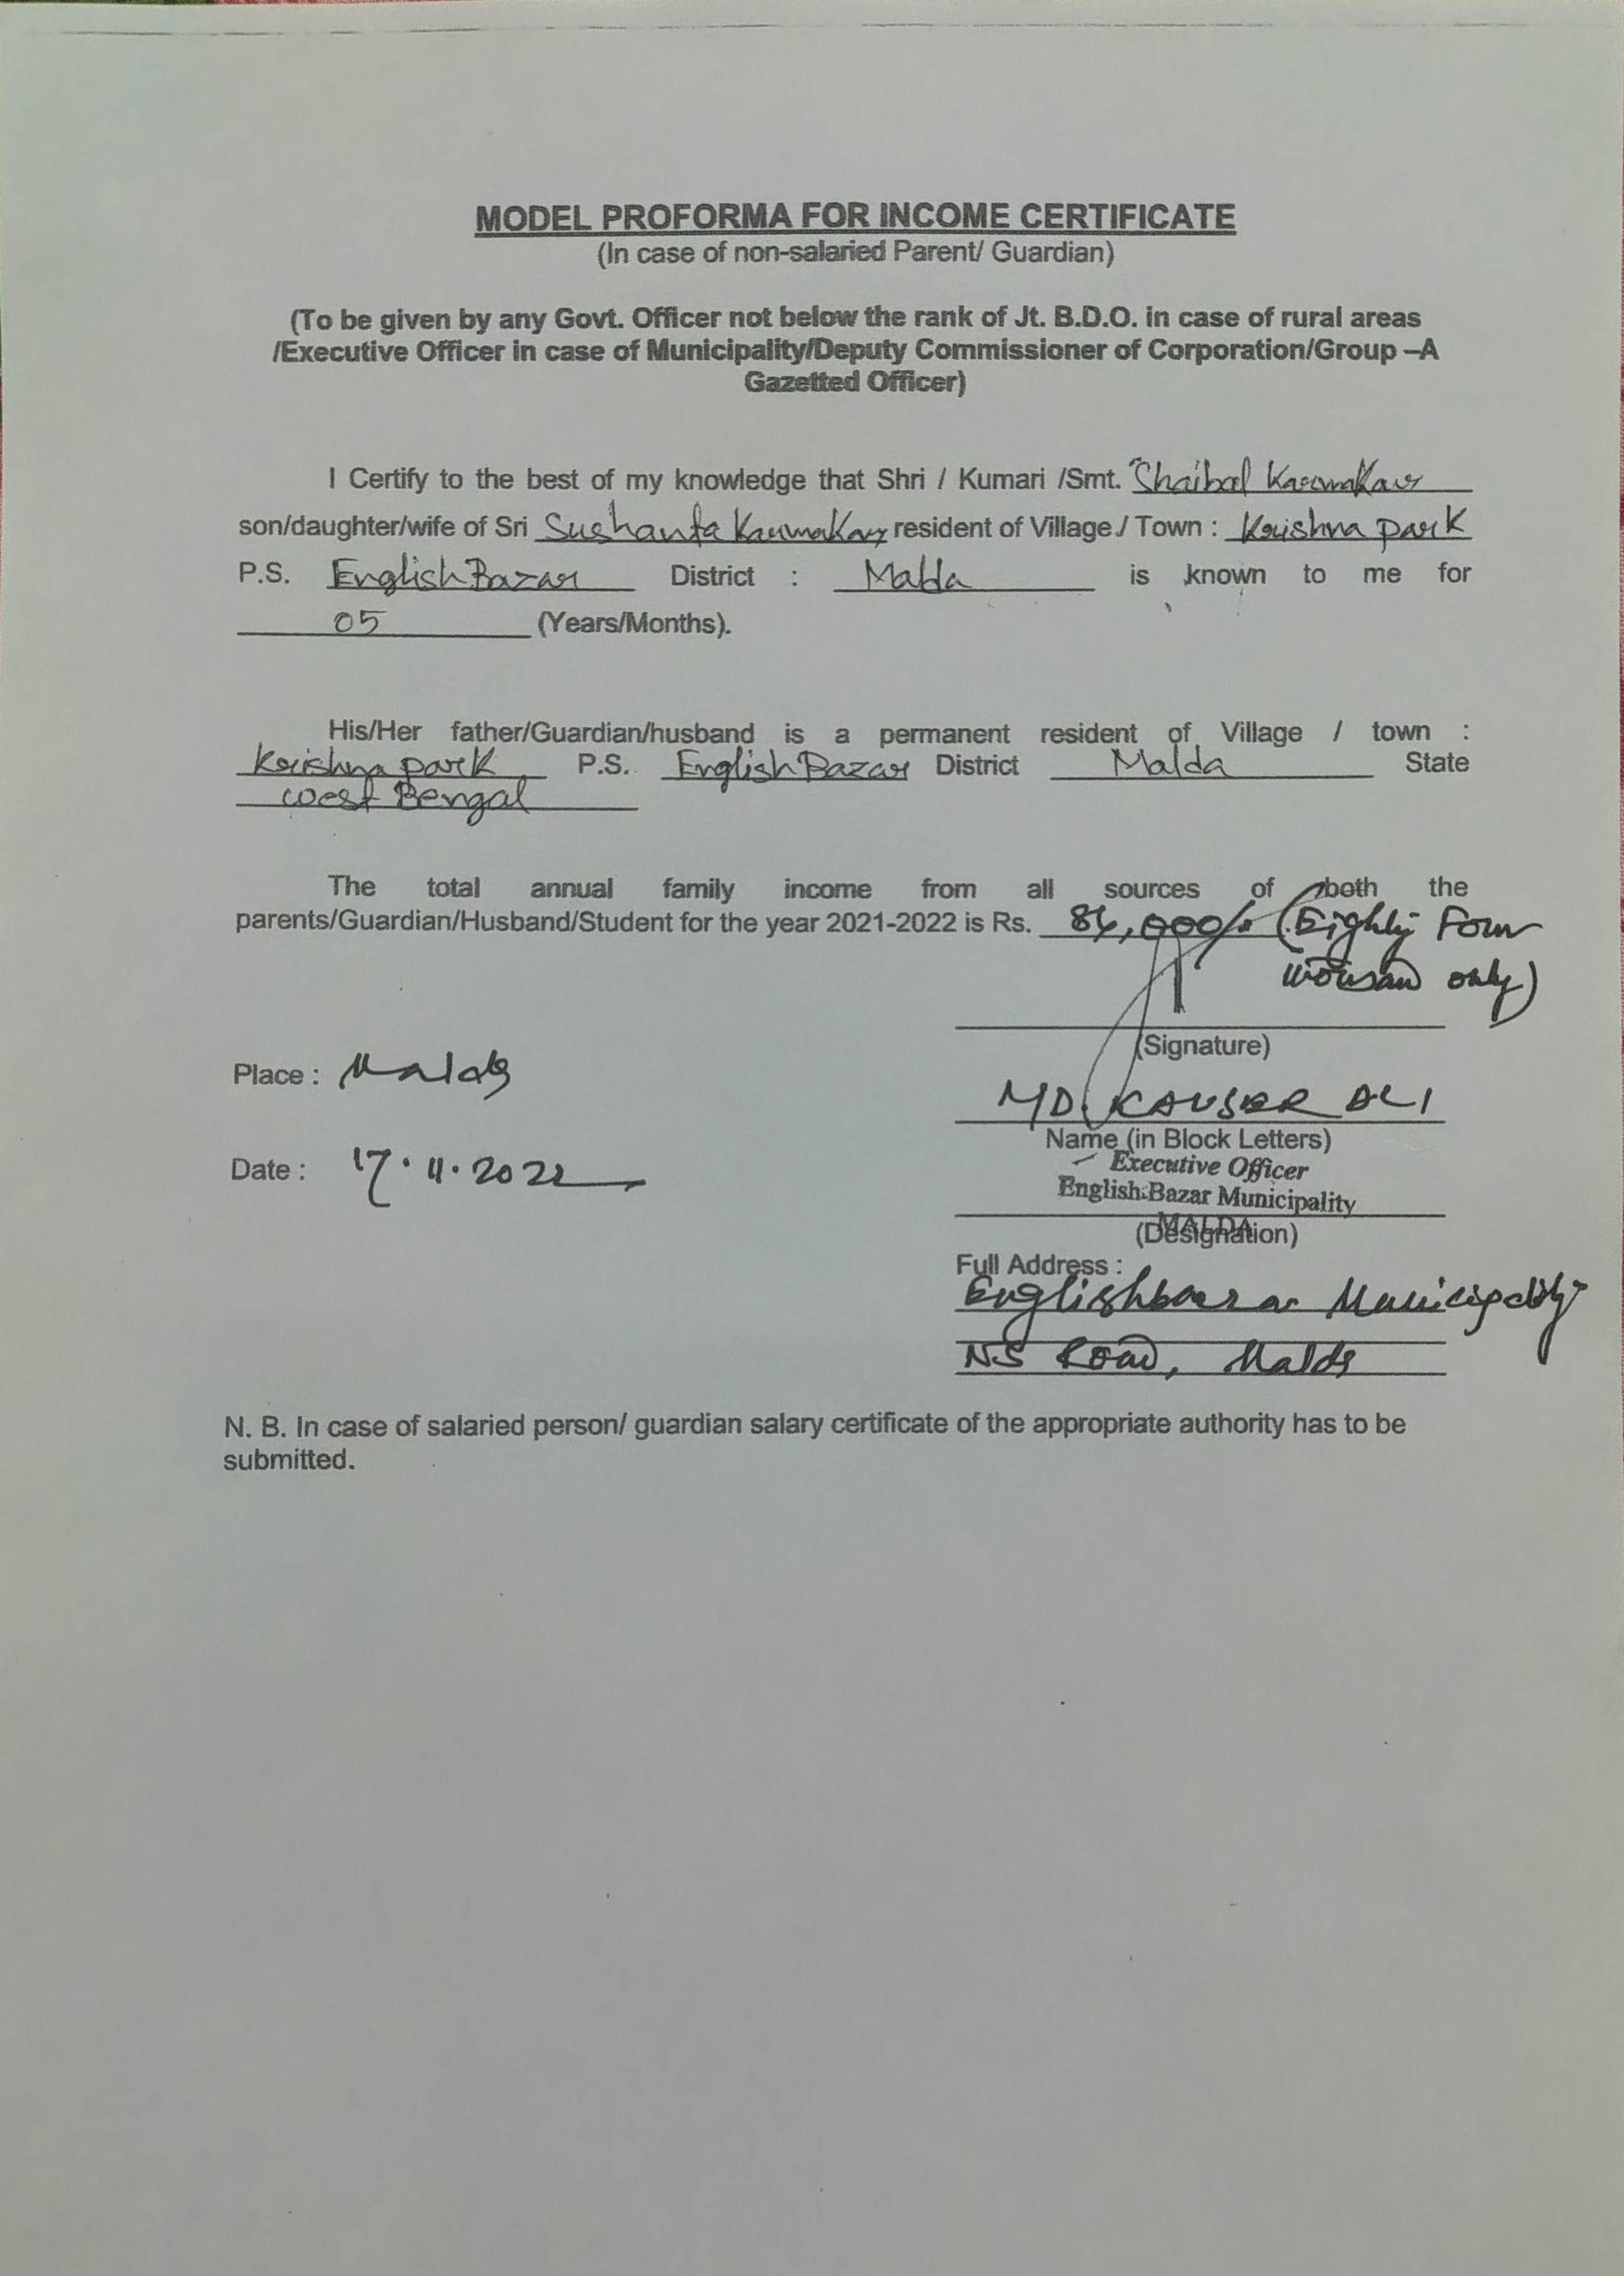 MODEL PROFORMA FOR INCOME CERTIFICATE
(In case of non-salaried Parent/ Guardian)
(To be given by any Govt. Officer not below the rank of Jt. B.D.O. in case of rural areas
/Executive Officer in case of Municipality/Deputy Commissioner of Corporation/Group –A
Gazetted Officer)
I Certify to the best of my knowledge that Shri / Kumari /Smt. Shaibal Karmakar
son/daughter/wife of Sri Sushanta Karmakar resident of Village / Town : Krishna park
P.S. English Bazar District : Malda is known to me for
05 (Years/Months).
His/Her father/Guardian/husband is a permanent resident of Village / town :
Krishna park P.S. English Bazar District Malda State
West Bengal
The total annual family income from all sources of both the
parents/Guardian/Husband/Student for the year 2021-2022 is Rs. 84,000/- (Eighty Four
only)
(Signature)
Place : Malda
MD. KAUSER ALI
Name (in Block Letters)
Date : 17.11.2022
Executive Officer
English Bazar Municipality
MALDA
(Designation)
Full Address :
Englishbazar Municipality
NS Road, Malda
N. B. In case of salaried person/ guardian salary certificate of the appropriate authority has to be
submitted.